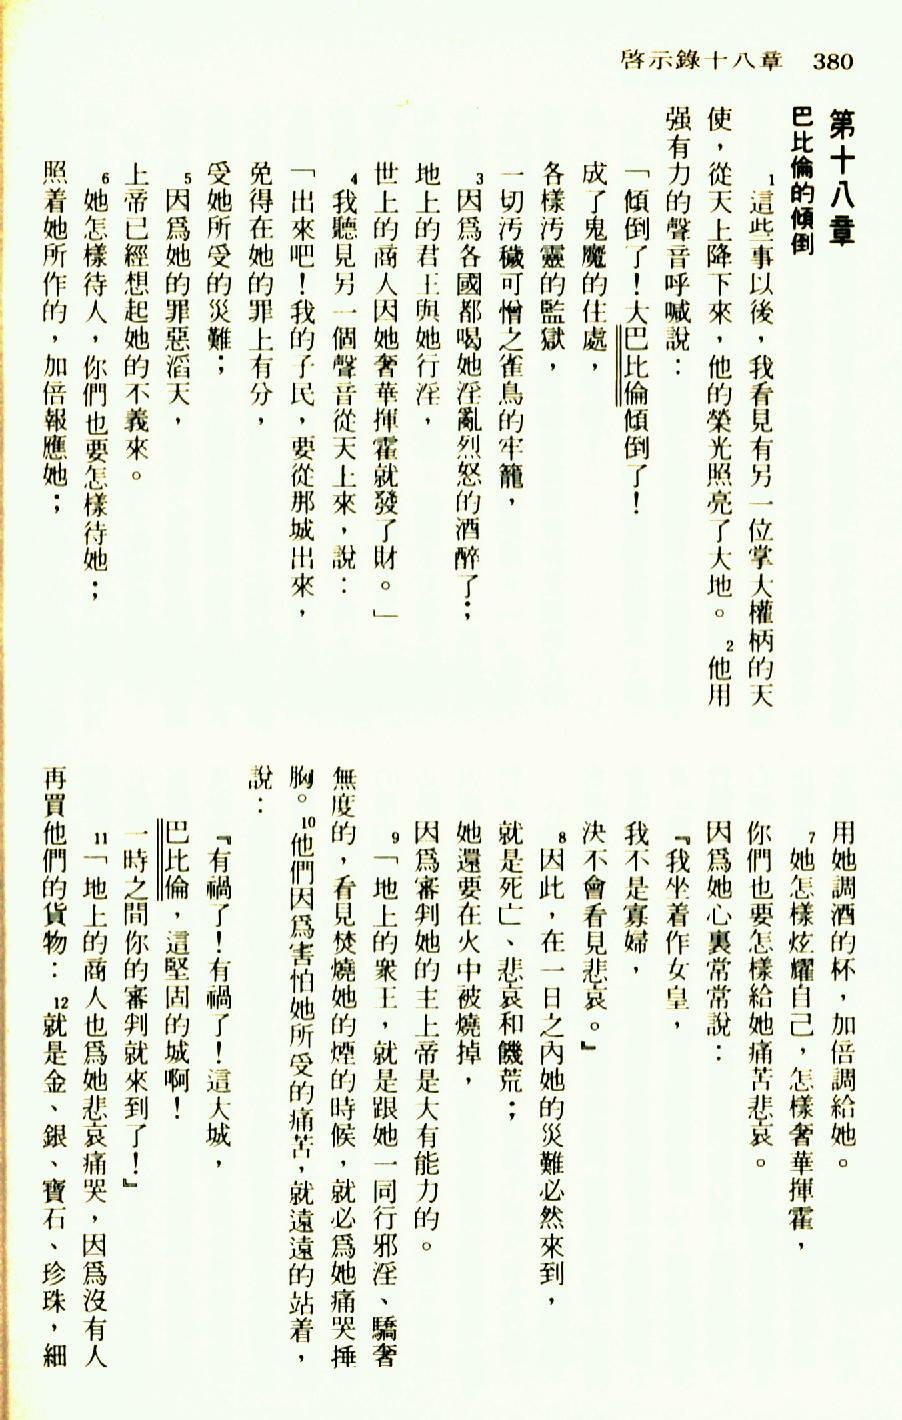 啓示錄十八章　380
第十八章
巴比倫的傾倒
1這些事以後，我看見有另一位掌大權柄的天
使，從天上降下來，他的榮光照亮了大地。2他用
强有力的聲音呼喊說：
「傾倒了！大巴比倫傾倒了！
成了鬼魔的住處，
各樣汚靈的監獄，
一切汚穢可憎之雀鳥的牢籠，
3因爲各國都喝她淫亂烈怒的酒醉了；
地上的君王與她行淫，
世上的商人因她奢華揮霍就發了財。」
4我聽見另一個聲音從天上來，說：
「出來吧！我的子民，要從那城出來，
免得在她的罪上有分，
受她所受的災難；
5因爲她的罪惡滔天，
上帝已經想起她的不義來。
6她怎樣待人，你們也要怎樣待她；
照着她所作的，加倍報應她；
用她調酒的杯，加倍調給她。
7她怎樣炫耀自己，怎樣奢華揮霍，
你們也要怎樣給她痛苦悲哀。
因爲她心裏常常說：
『我坐着作女皇，
我不是寡婦，
決不會看見悲哀。』
8因此，在一日之內她的災難必然來到，
就是死亡、悲哀和饑荒；
她還要在火中被燒掉，
因爲審判她的主上帝是大有能力的。
9「地上的衆王，就是跟她一同行邪淫、驕奢
無度的，看見焚燒她的煙的時候，就必爲她痛哭捶
胸。10他們因爲害怕她所受的痛苦，就遠遠的站着，
說：
『有禍了！有禍了！這大城，
巴比倫，這堅固的城啊！
一時之間你的審判就來到了！』
11「地上的商人也爲她悲哀痛哭，因爲沒有人
再買他們的貨物：12就是金、銀、寶石、珍珠，細